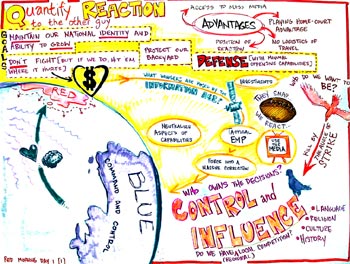 Quantify REACTION
to the other guy
GOALS
MAINTAIN OUR NATIONAL IDENTITY AND
ABILITY TO GROW
DON'T FIGHT [BUT IF WE DO, HIT EM
WHERE IT HURTS]
PROTECT OUR
BACKYARD
ACCESS TO MASS MEDIA
ADVANTAGES
PLAYING HOME-COURT
ADVANTAGE
POSITION OF
REACTION
NO LOGISTICS OF
TRAVEL
DEFENSE [WITH MINIMAL
OFFENSIVE CAPABILITIES]
$
RED
INFORMATION AGE?
INVESTMENTS
DO WE WANT TO
BE?
THEY SNAP
WE REACT...
NEUTRALIZE
ASPECTS OF
CAPABILITIES
TACTICAL
EMP
USE
THE
MEDIA
FORCE INTO A
MASSIVE CORRECTION
STRIKE
BLUE
COMMAND AND CONTROL
WHO OWNS THE DECISIONS?
CONTROL and
INFLUENCE
DO WE HAVE A LOCAL COMPETITION?
(REGIONAL)
• LANGUAGE
• RELIGION
• CULTURE
• HISTORY
RED MORNING DAY 1 [1]